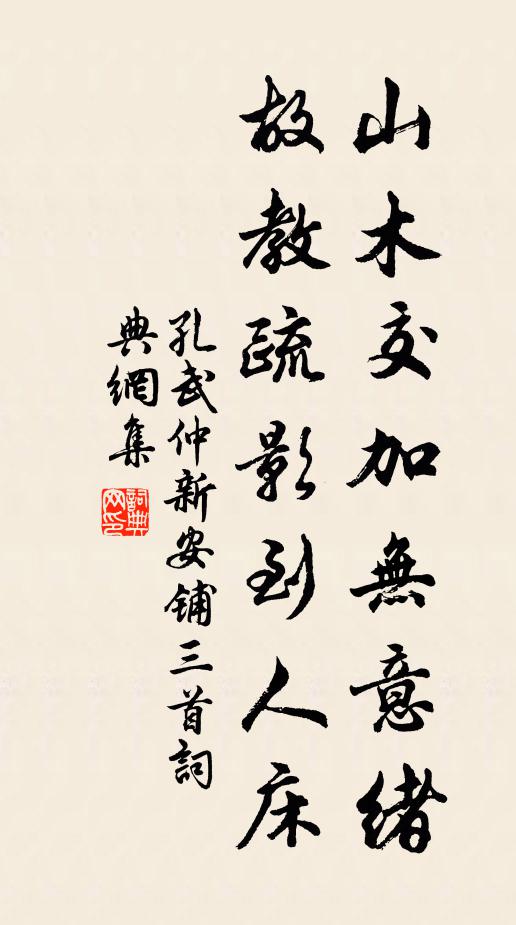 山木交加無意緒
故教疏影到人床
孔武仲新安鋪三首詞
典網集
詞典網印